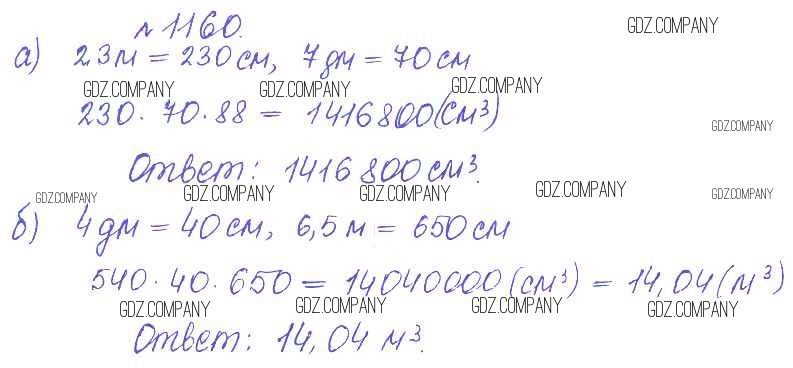 №1160. GDZ.COMPANY
а) 2,3м = 230 см, 7дм = 70 см
GDZ.COMPANY GDZ.COMPANY GDZ.COMPANY
230 · 70 · 88 = 1416800 (см³)
GDZ.COMPANY
Ответ: 1416800 см³.
GDZ.COMPANY GDZ.COMPANY GDZ.COMPANY GDZ.COMPANY GDZ.COMPANY
б) 4дм = 40 см, 6,5 м = 650 см
540 · 40 · 650 = 14040000 (см³) = 14,04 (м³)
GDZ.COMPANY GDZ.COMPANY GDZ.COMPANY GDZ.COMPANY
Ответ: 14,04 м³.